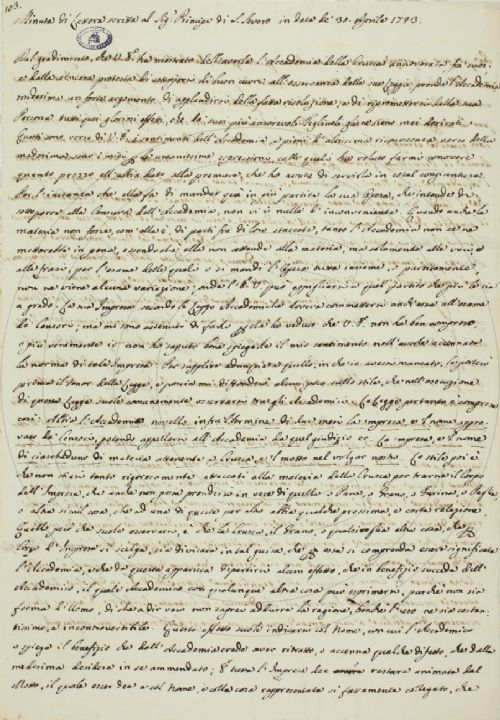 103.
Minuta di Lettera scritta al Sig.r Principe di S. Severo in data de' 30. Aprile 1743.
Dal gradimento, che V. E. ha mostrato dell'averla l'Accademia della Crusca annoverata fra' suoi,
e dalla sincera protesta di di buon cuore all'osservanza delle sue Leggi, prende l'Accademia
medesima un forte argomento di applaudirsi della fatta risoluzione, e di ripromettersi dalla sua
Persona tutti quei gloriosi effetti, che da' suoi più amorevoli Figliuoli glene sieno mai derivati.
Questi sono verso di V. E. i sentimenti dell'Accademia, e pieni d'altissima riconoscenza verso della
medesima sono i miei espressioni, colle quali ha voluto farmi conoscere
quanto prezzo ell'abbia dato alla premura, che ho avuto di servirla in tal congiuntura.
Per l'istanza che ella fa di mandar qua in più partite la sua Opera, che intende di
sottoporre alla Censura dell'Accademia, non vi è nulla d'inconveniente. Quando anche la
materia non fosse, com'ella è, di parti fra di loro staccate, tanto l'Accademia non se ne
metterebbe in pena, essendochè ella non attende alla materia, ma solamente alle voci, e
alle frasi, per l'esame delle quali o si mandi l'Opera tutta insieme, o partitamente
non ne viene alcuna variazione; onde l'E. V. può appigliarsi a quel partito che più le sia
a grado. La sua Impresa secondo le Leggi Accademiche doveva commettersi anch'essa all'esame
de' Censori; ma mi sono astenuto di farlo, perchè ho veduto che V. E. non ha ben compreso,
o più veramente io non ho saputo bene spiegarle il mio sentimento nell'averle accennate
la norma di tale Impresa. Per supplire adunque a quello, in che io avessi mancato, le
prima il tenor della Legge, e poscia mi distenderò alcun poco sullo stile, che nell'esecuzione
di questa Legge suole comunemente osservarsi tra gli Accademici. La Legge pertanto è compresa
così: Alzi l'Accademico novello infra'l termine di due mesi la impresa, e'l nome appro-
vato da' Censori, potendo appellarsi all'Accademia da quel giudizio ec. La impresa, e'l nome
di ciascheduno di materia attenente a Crusca, e'l motto nel volgar nostro. Lo stile poi è
che non si sta tanto rigorosamente attaccati alla materia della Crusca per trarne il Corpo
dell'Impresa, che anche non possa prendersi in vece di quella o Pane, o Grano, o Farina, o Pasta,
o altra simil cosa, che ad una di queste per lo abbia qualche prossima, e certa relazione.
Quello però che suole osservarsi, è che la Crusca, il Grano, o qualsivoglia altra cosa, che per
Corpo d'Impresa si scelga, sia divisata in tal guisa, che per essa si comprenda essere significata
l'Accademia, e che da questa apparisca dipartirsi alcun effetto, che in benefizio succeda dell'
Accademico, il quale Accademico con qualunque altra cosa può esprimersi, purchè non sia
forma d'Uomo, di che a dir vero non saprei addurre la ragione, benchè l'uso ne sia costan-
tissimo, e incontrovertibile. Questo effetto suole indicarsi col Nome, con cui l'Accademico
o spiega il benefizio che dall'Accademia crede aver ritratto, o accenna qualche difetto, che dalla
medesima desidera in se ammendato; e tutta l'Impresa dee restare animata dal
Motto, il quale esser dee e col Nome, e colla cosa rappresentata sì fattamente collegato, che